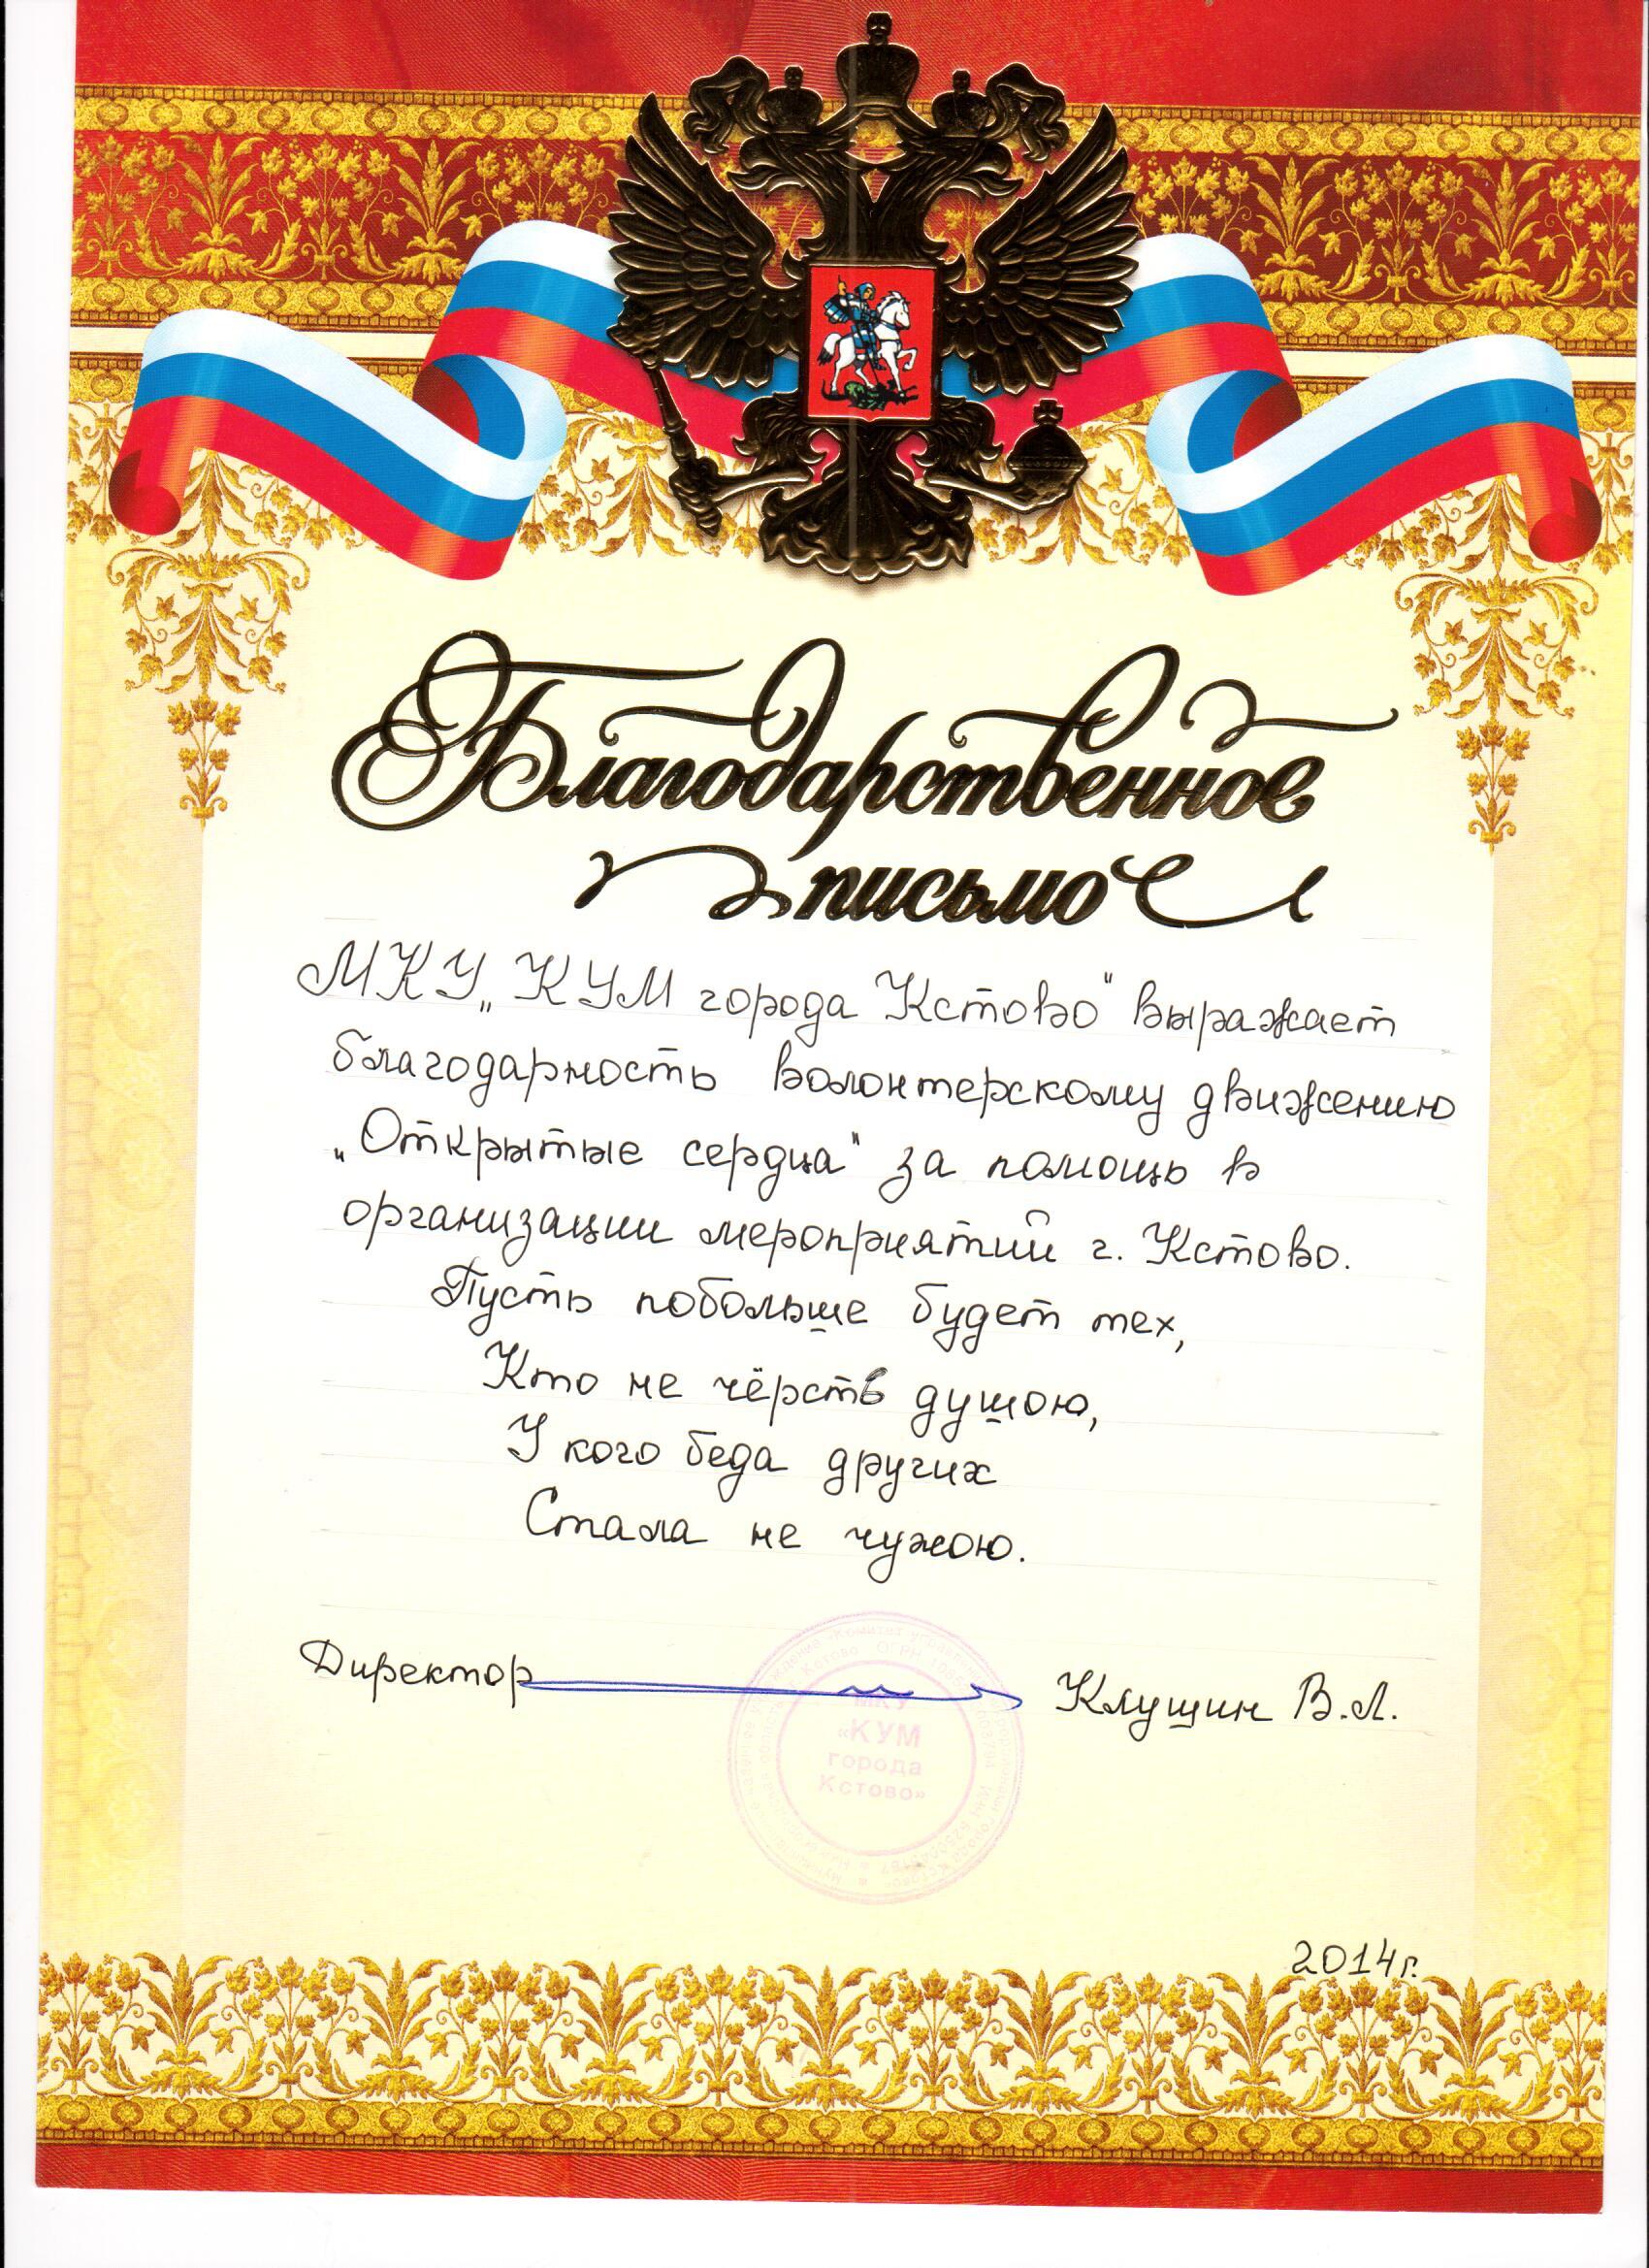 Благодарственное
письмо
МКУ „КУМ города Кстово" выражает
благодарность волонтерскому движению
„Открытые сердца" за помощь в
организации мероприятий г. Кстово.
Пусть побольше будет тех,
Кто не чёрств душою,
У кого беда других
Стала не чужою.
Директор Клущин В.Л.
МКУ
«КУМ
города
Кстово»
2014г.